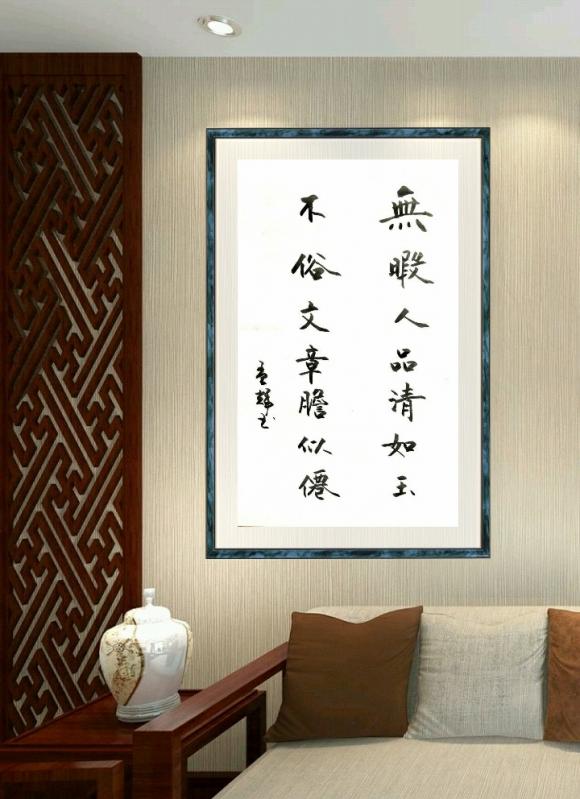 無暇人品清如玉
不俗文章膽似僊
輝书